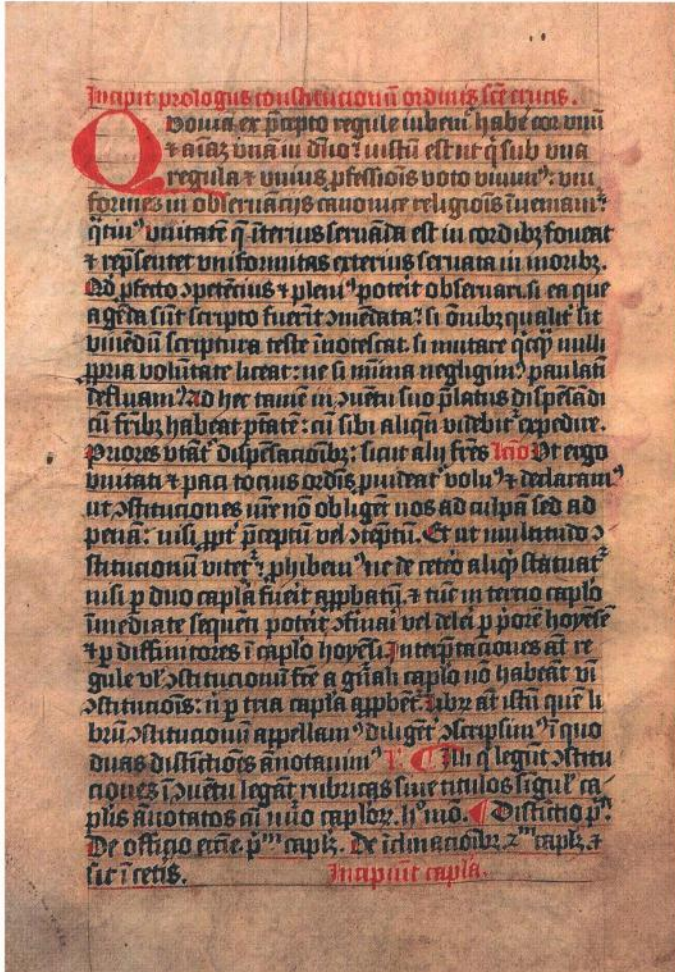 Incipit prologus constitucionū ordinis scē crucis.
Quonia ex p̄cepto regule iubemʳ habe cor vnū
⁊ aīaꝫ vnā in dn̄o: iustū est ut q̄ sub vna
regula ⁊ vniusˌ ꝓfessiōis voto viuimꝰ: vni
formes in obseruācijs canonice religiōis īueniamʳ
q̄tinꝰ vnitatē q̄ īterius seruāda est in cordibꝫ foueat
⁊ rep̄sentet vniformitas exterius seruata in moribꝫ.
Qd̄ ꝓfecto ↄpetēcius ⁊ pleniꝰ poteīt obseruari. si ea que
agēda sūt scripto fuerīt ↄmēdata: si ōnibꝫ qualitʳ sit
viuēdū scriptura teste īnotescat. si mutare q̄cq̄ꝫ nulli
ꝓpria volūtate liceat: ne si mīma negligimꝰ paulatī
defluamꝰ. Ad hec tamē in ↄuētu suo p̄latus dispēsādi
cū frībꝫ habeat ptātē: cū sibi aliqn̄ videbitʳ expedire.
Priores vtātʳ dispēsacioībꝫ: sicut alij frēs Icīo Vt ergo
vnitati ⁊ paci tocius ordīs ꝓuideatʳ volumꝰ ⁊ declaramꝰ
ut ↄstituciones nr̄e nō obligēt nos ad culpā sed ad
penā: nisi ꝓptʳ p̄ceptū vel ↄtēptū. Et ut multitudo ↄ
stitucionū vitetʳ: ꝓhibemꝰ ne de ceteo aliqͩ statuatʳ
nisi ꝑ duo capl̄a fueīt apꝓbatū. ⁊ tūc in tercio caplo
īmediate sequēti poteīt ↄfirmai vel delei ꝑ p̄orē hoyēsē
⁊ ꝑ diffinitores ī caplo hoyēsi. Interp̄taciones at̄ re
gule vl̓ ↄstitucionū fc̄e a gn̄ali caplo nō habeāt vī
ↄstituciōis: n̄ ꝑ tria capl̄a apꝓbētʳ. librū at̄ istū quē li
brū ↄstitucionū appellamꝰ diligētʳ ↄscripsimꝰ ī quo
duas distīctiōes ānotauimꝰ Illi q̄ legūt ↄstitu
ciones ī ↄuētu legāt rubricas siue titulos sīguloꝝ ca
pl̄is ānotatos cū nūo caploꝝ. hͦ mō. Distīctio pͣ.
De officio ecc̄ie. pͫ capl̄ꝫ. De īclinacioībꝫ 2ͫ capl̄ꝫ ⁊
sic ī cetīs. Incipiūt capl̄a.